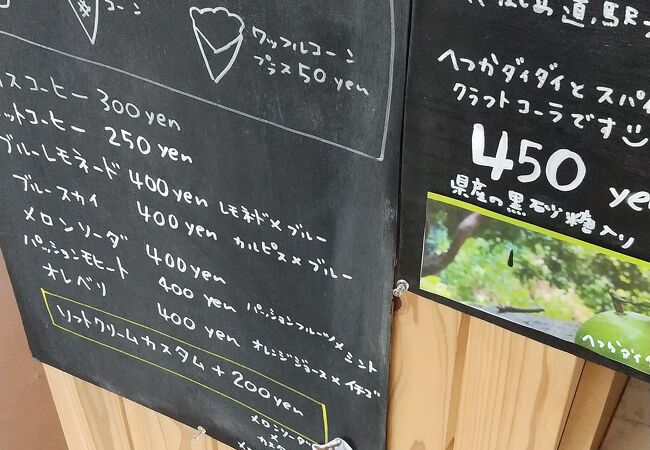 コーン
ワッフルコーン
プラス50yen
イスコーヒー 300yen
ットコーヒー 250yen
ブルーレモネード 400yen レモネード×ブルー
ブルースカイ 400yen カルピス×ブルー
メロンソーダ 400yen
パッションモヒート 400yen パッションフルーツ×ミント
オレベリ 400yen オレンジジュース×イチゴ
ソフトクリームカスタム +200yen
メロンソーダ
×
道の駅
へつかダイダイとスパイ
クラフトコーラです
450 yen
県産の黒砂糖入り
へつかダイダイ